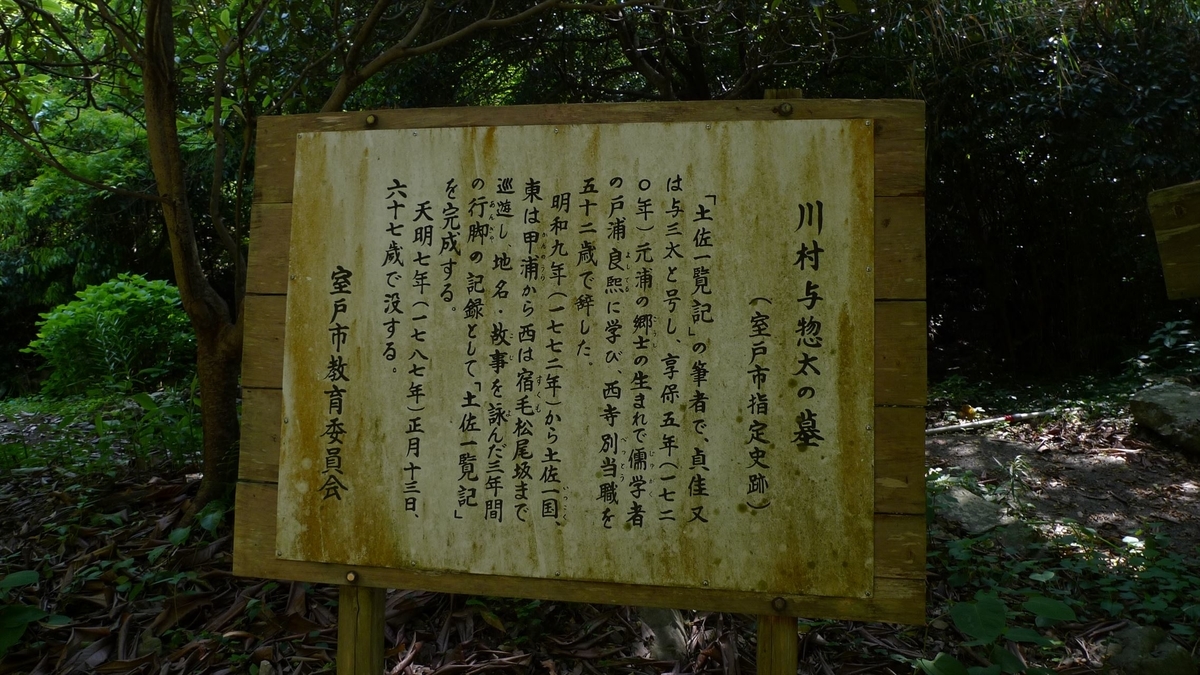 川村与惣太の墓
（室戸市指定史跡）
「土佐一覧記」の筆者で、貞佳又
は与三太と号し、享保五年（一七二
〇年）元浦の郷士の生まれで儒学者
の戸浦良熙に学び、西寺別当職を
五十二歳で辞した。
明和九年（一七七二年）から土佐一国、
東は甲浦から西は宿毛松尾坂まで
巡遊し、地名・故事を詠んだ三年間
の行脚の記録として「土佐一覧記」
を完成する。
天明七年（一七八七年）正月十三日、
六十七歳で没する。
室戸市教育委員会